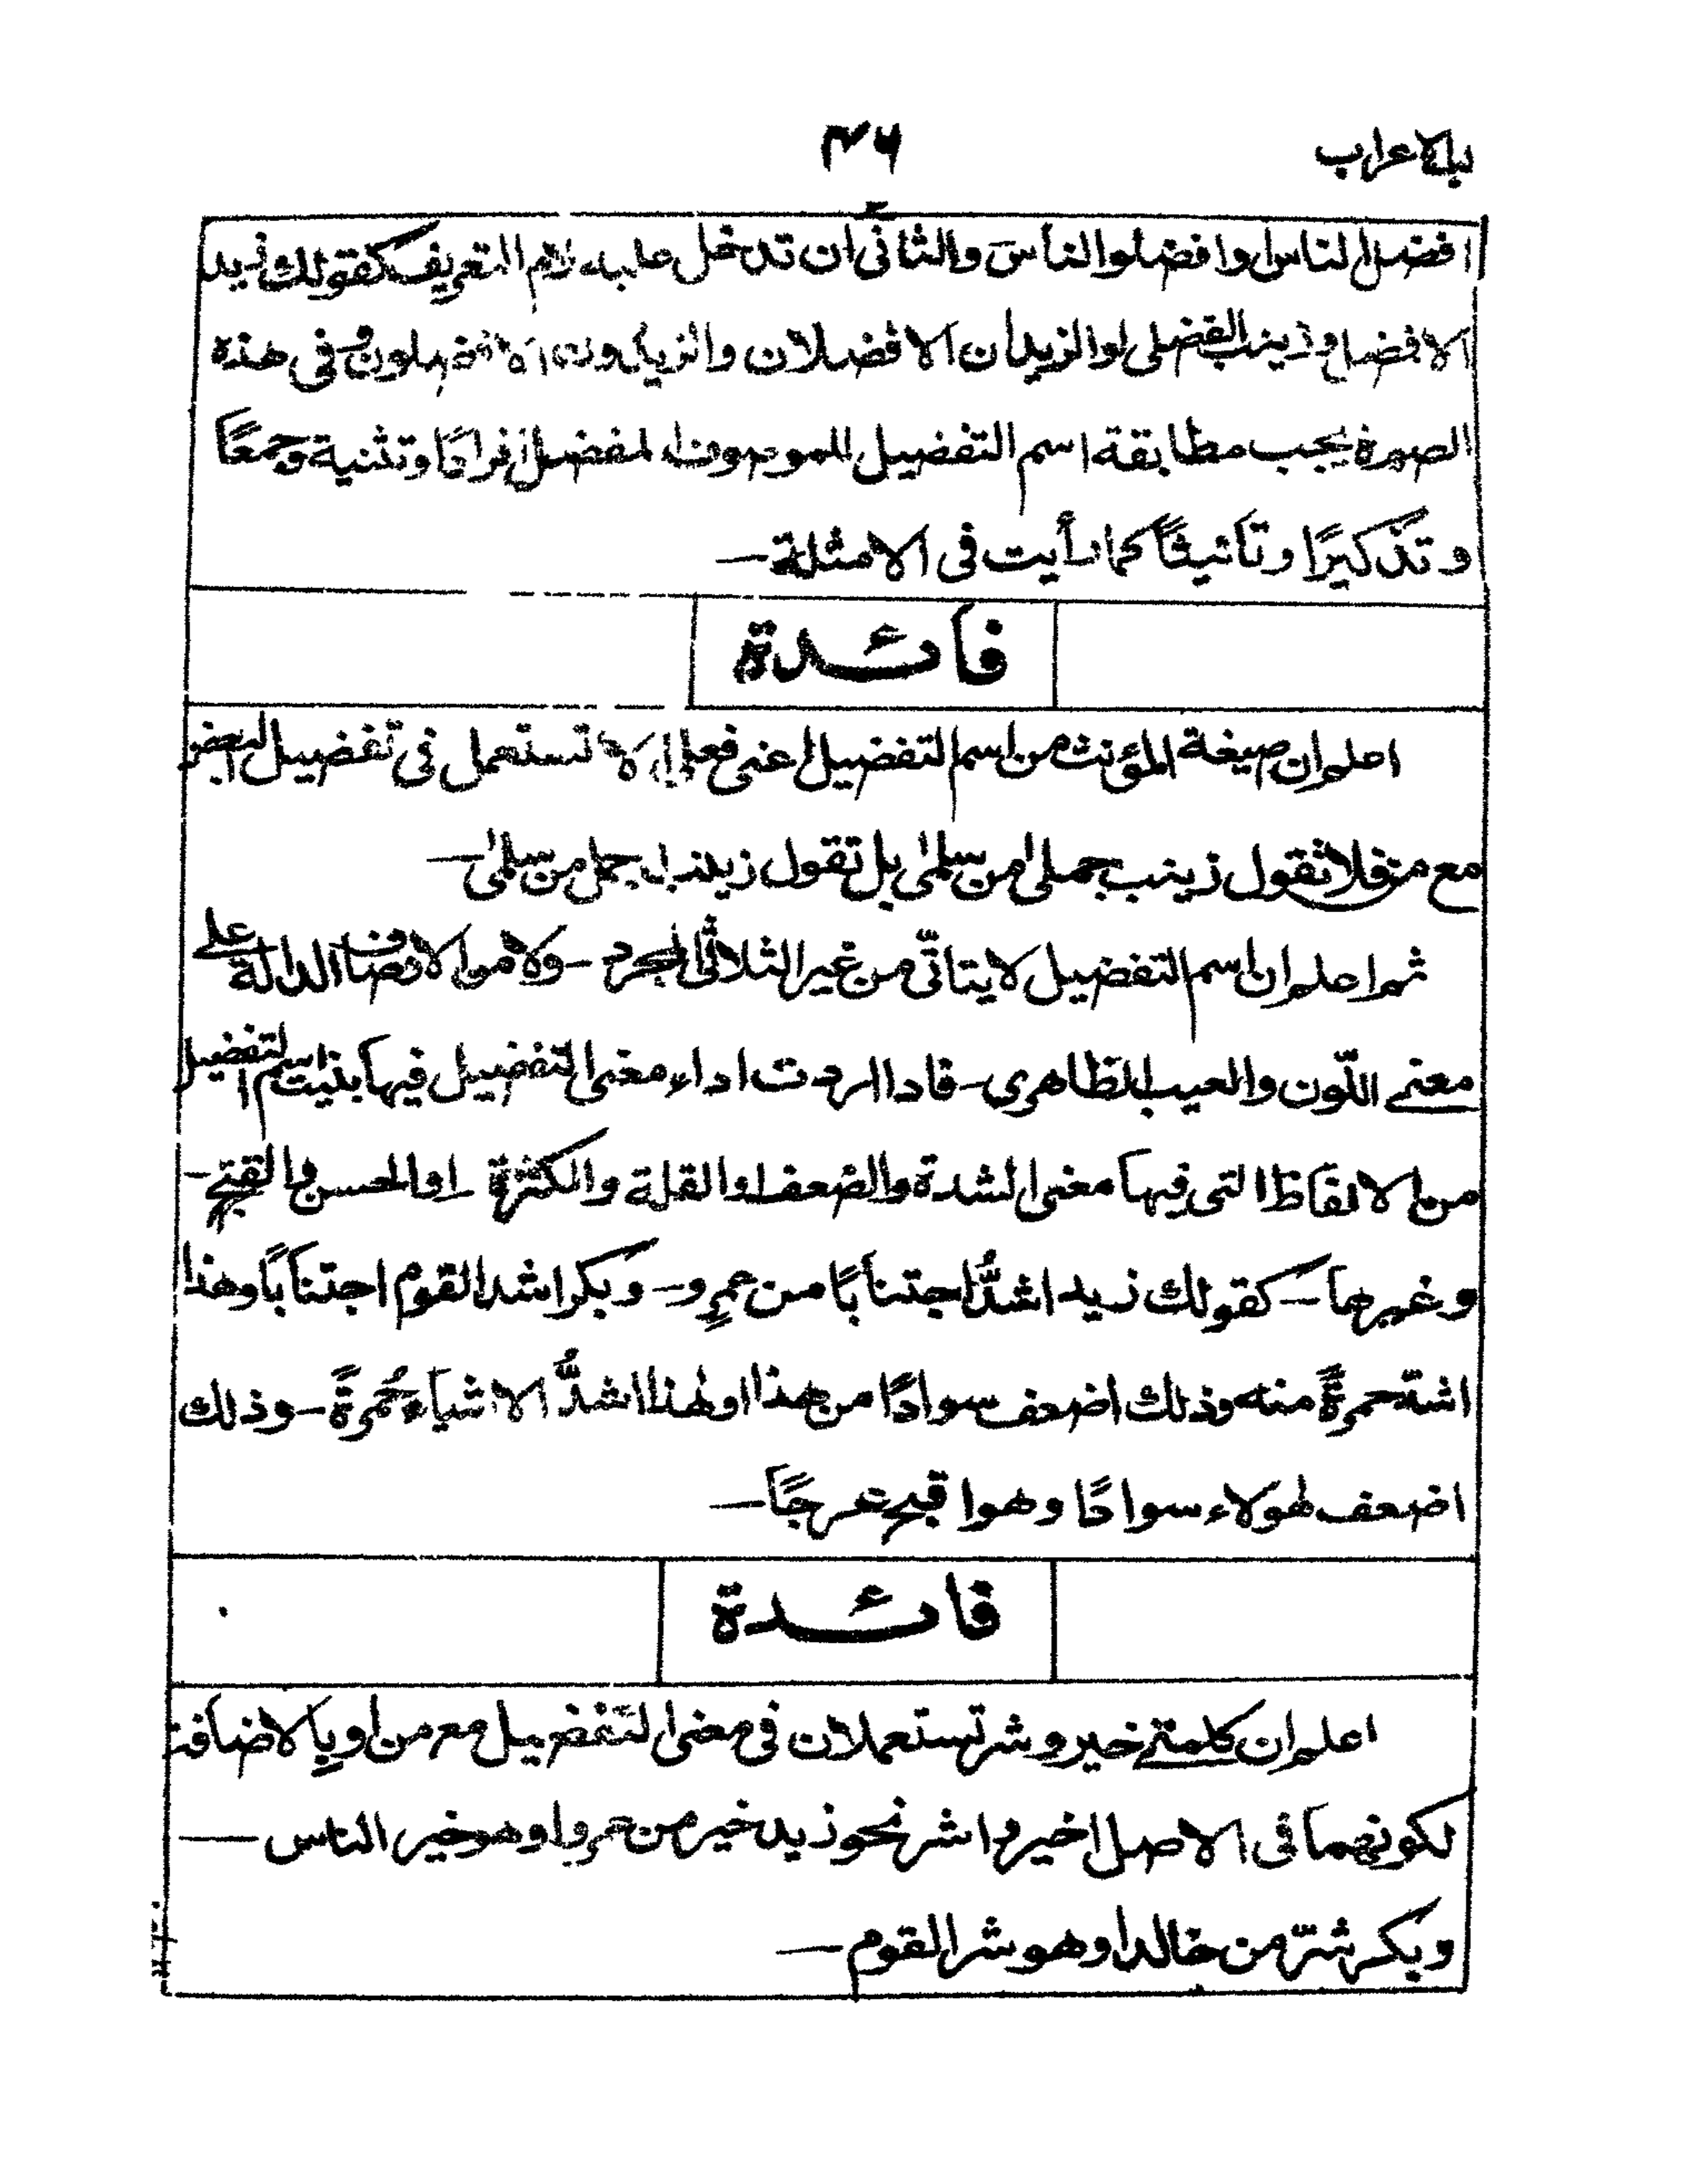 باب الاعراب
٣٤
افضل الناس وافضلوا الناس والثانى ان تدخل عليه لام التعريف كقولك زيد
الافضل وزينب الفضلى او الزيدان الافضلان والزيدون الافضلون وفى هذه
الصورة يجب مطابقة اسم التفضيل للموصوف المفضل افرادًا وتثنية وجمعًا
وتذكيرًا وتأنيثًا كما رأيت فى الامثلة—
فائدة
اعلم ان صيغة المؤنث من اسم التفضيل اعنى فعلى لا تستعمل فى تفضيل البعض
مع من فلا تقول زينب جملى من سلمىٰ بل تقول زينب اجمل من سلمىٰ—
ثم اعلم ان اسم التفضيل لا يتاتّى من غير الثلاثى المجرد - ولا من الاوصاف الدالة على
معنى اللّون والعيب الظاهرى - فاذا اردت اداء معنى التفضيل فيها بنيت اسم التفضيل
من الالفاظ التى فيها معنى الشدة والضعف او القلة والكثرة - او الحسن والقبح -
وغيرها — كقولك زيد اشدُّ اجتنابًا من عمرٍو - وبكر اشد القوم اجتنابًا وهذا
اشدّ حمرةً منه وذلك اضعف سوادًا من هذا او لهذا اشدُّ الاشياء حُمرةً - وذلك
اضعف لهولاء سوادًا وهو اقبح عرجًا—
فائدة
اعلم ان كلمتى خير وشر تستعملان فى معنى التفضيل مع من او بالاضافة
لكونهما فى الاصل اخير واشر نحو زيد خير من عمرو او هو خير الناس —
وبكر شرّ من خالد او هو شر القوم —